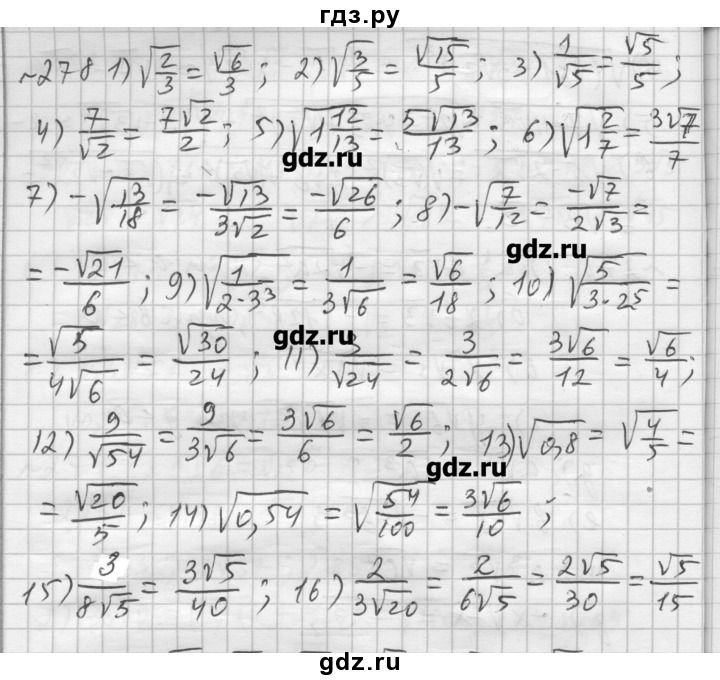 гдз.ру
~278 1) √(2/3) = √6/3 ; 2) √(3/5) = √15/5 ; 3) 1/√5 = √5/5 ;
4) 7/√2 = 7√2/2 ; 5) √(1 12/13) = 5√13/13 ; 6) √(1 2/7) = 3√7/7
gdz.ru
7) -√(13/18) = -√13/(3√2) = -√26/6 ; 8) -√(7/12) = -√7/(2√3) =
gdz.ru
= -√21/6 ; 9) √(1/(2·3³)) = 1/(3√6) = √6/18 ; 10) √(5/(3·2⁵)) =
gdz.ru
= √5/(4√6) = √30/24 ; 11) 3/√24 = 3/(2√6) = 3√6/12 = √6/4 ;
12) 9/√54 = 9/(3√6) = 3√6/6 = √6/2 ; 13) √0,8 = √(4/5) =
gdz.ru
= √20/5 ; 14) √0,54 = √(54/100) = 3√6/10 ;
15) 3/(8√5) = 3√5/40 ; 16) 2/(3√20) = 2/(6√5) = 2√5/30 = √5/15
gdz.ru